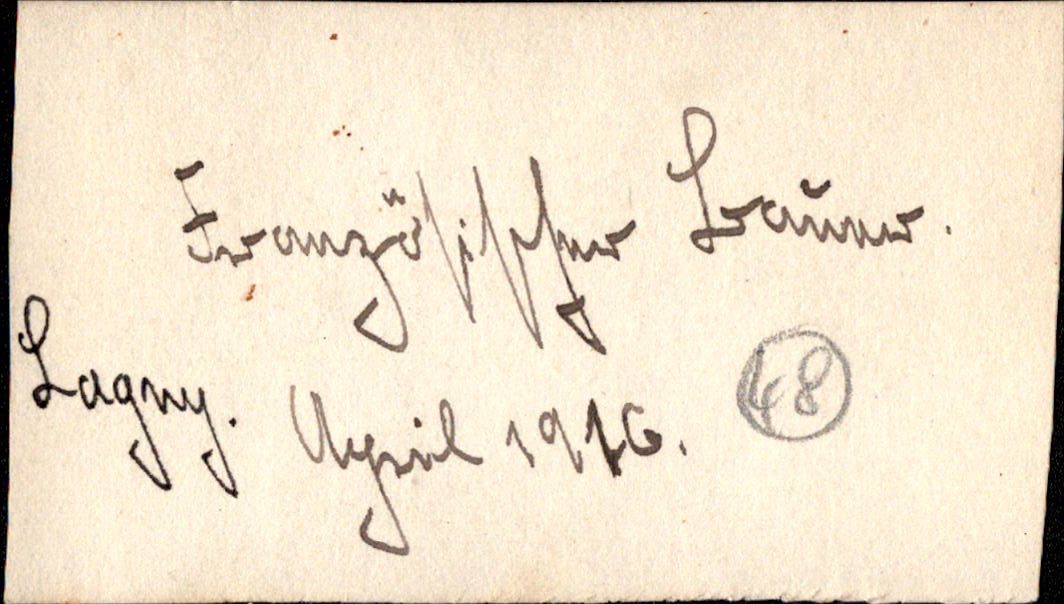 Französischer Bauer.
Lagny. April 1916.
48